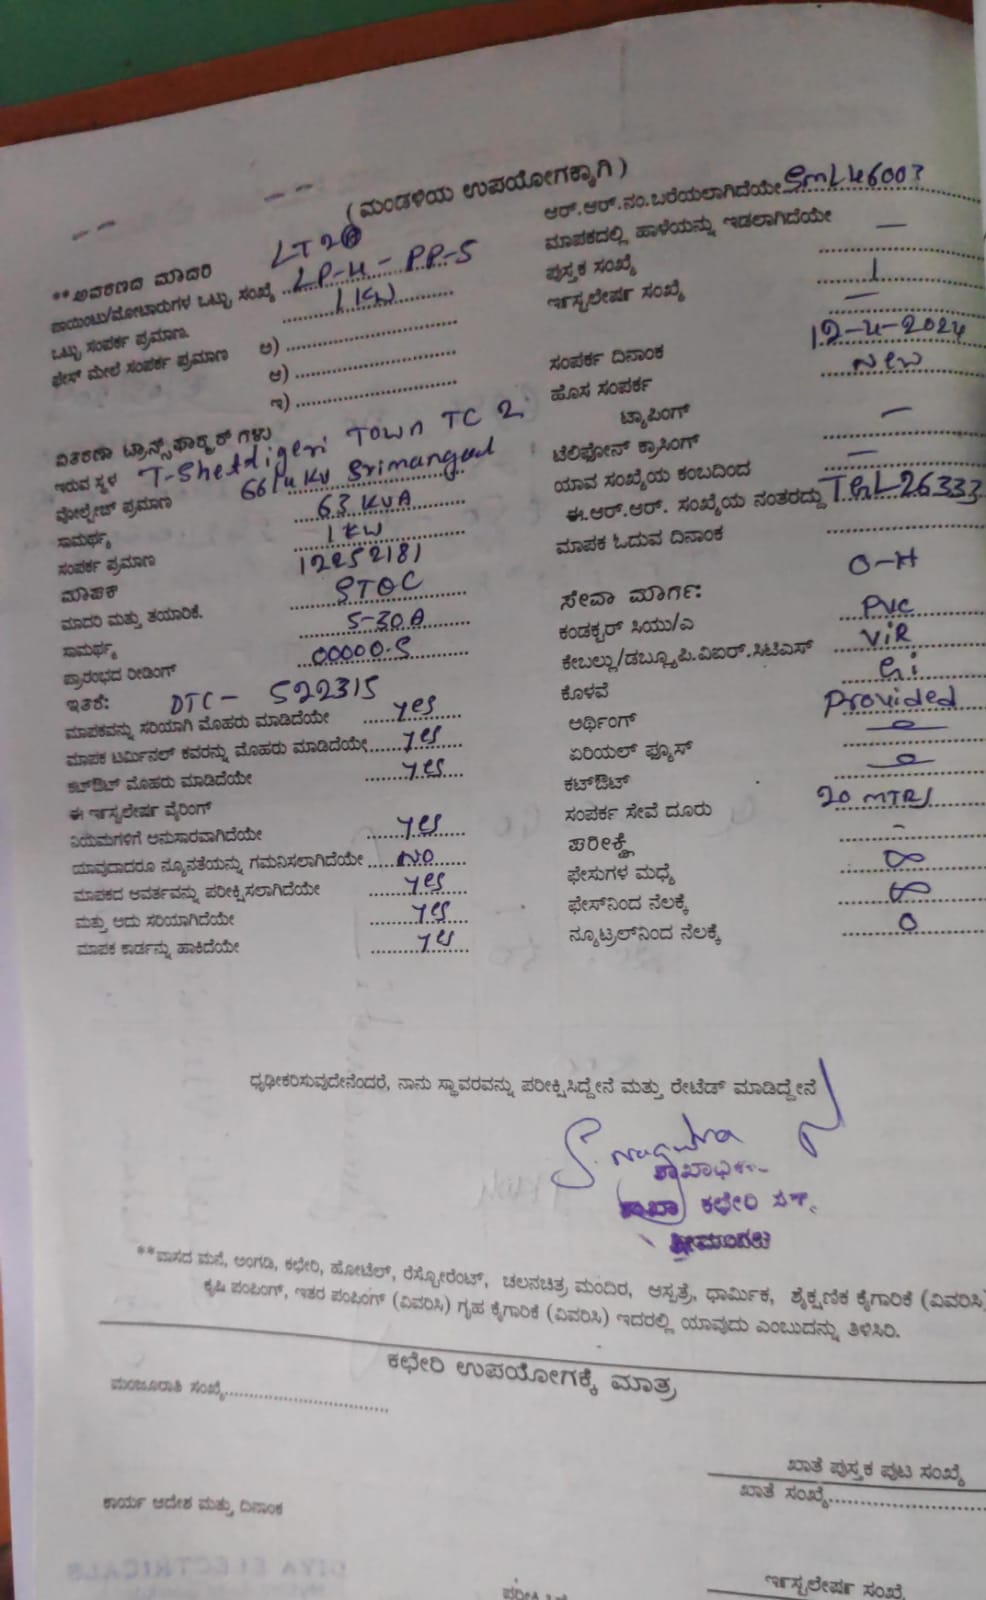 (ಮಂಡಳಿಯ ಉಪಯೋಗಕ್ಕಾಗಿ)
**ಅವಕರಣದ ಮಾದರಿ LT2
ಪಾಯಿಂಟು/ಮೋಟಾರುಗಳ ಒಟ್ಟು ಸಂಖ್ಯೆ LP-4-PP-5
ಒಟ್ಟು ಸಂಪರ್ಕ ಪ್ರಮಾಣ 1 KW
ಫೇಸ್ ಮೇಲೆ ಸಂಪರ್ಕ ಪ್ರಮಾಣ ಅ)
ಆ)
ಇ)
ವಿತರಣಾ ಟ್ರಾನ್ಸ್‌ಫಾರ್ಮರ್‌ಗಳು
ಇರುವ ಸ್ಥಳ T-Shettigeri Town TC 2
ವೋಲ್ಟೇಜ್ ಪ್ರಮಾಣ 66/11 KV Srimangal
ಸಾಮರ್ಥ್ಯ 63 KVA
ಸಂಪರ್ಕ ಪ್ರಮಾಣ 1 KW
ಮಾಪಕ 12252181
ಮಾದರಿ ಮತ್ತು ತಯಾರಿಕೆ. STOC
ಸಾಮರ್ಥ್ಯ 5-30A
ಪ್ರಾರಂಭದ ರೀಡಿಂಗ್ 00000.5
ಇತರೆ: DTC - 522315
ಮಾಪಕವನ್ನು ಸರಿಯಾಗಿ ಮೊಹರು ಮಾಡಿದೆಯೇ yes
ಮಾಪಕ ಟರ್ಮಿನಲ್ ಕವರನ್ನು ಮೊಹರು ಮಾಡಿದೆಯೇ yes
ಕಟ್‌ಔಟ್ ಮೊಹರು ಮಾಡಿದೆಯೇ yes
ಈ ಇನ್ಸ್ಟಲೇಷನ್ ವೈರಿಂಗ್
ನಿಯಮಗಳಿಗೆ ಅನುಸಾರವಾಗಿದೆಯೇ yes
ಯಾವುದಾದರೂ ನ್ಯೂನತೆಯನ್ನು ಗಮನಿಸಲಾಗಿದೆಯೇ NO
ಮಾಪಕದ ಆವರ್ತವನ್ನು ಪರೀಕ್ಷಿಸಲಾಗಿದೆಯೇ yes
ಮತ್ತು ಅದು ಸರಿಯಾಗಿದೆಯೇ yes
ಮಾಪಕ ಕಾರ್ಡನ್ನು ಹಾಕಿದೆಯೇ yes
ಆರ್.ಆರ್.ನಂ.ಬರೆಯಲಾಗಿದೆಯೇ SML46003
ಮಾಪಕದಲ್ಲಿ ಹಾಳೆಯನ್ನು ಇಡಲಾಗಿದೆಯೇ —
ಪುಸ್ತಕ ಸಂಖ್ಯೆ 1
ಇನ್ಸ್ಟಲೇಷನ್ ಸಂಖ್ಯೆ —
ಸಂಪರ್ಕ ದಿನಾಂಕ 12-4-2024
ಹೊಸ ಸಂಪರ್ಕ New
ಟ್ಯಾಪಿಂಗ್
ಟೆಲಿಫೋನ್ ಕ್ರಾಸಿಂಗ್ —
ಯಾವ ಸಂಖ್ಯೆಯ ಕಂಬದಿಂದ —
ಈ.ಆರ್.ಆರ್. ಸಂಖ್ಯೆಯ ನಂತರದ್ದು TGL26333
ಮಾಪಕ ಓದುವ ದಿನಾಂಕ
ಸೇವಾ ಮಾರ್ಗ: O-H
ಕಂಡಕ್ಟರ್ ಸಿಯು/ಎ PVC
ಕೇಬಲ್ಲು/ಡಬ್ಲ್ಯೂಪಿ.ವಿಐಆರ್.ಸಿಟಿಎಸ್ ViR
ಕೊಳವೆ Gi
ಅರ್ಥಿಂಗ್ Provided
ಏರಿಯಲ್ ಫ್ಯೂಸ್
ಕಟ್‌ಔಟ್
ಸಂಪರ್ಕ ಸೇವೆ ದೂರು 20 MTRS
ಪರೀಕ್ಷೆ -
ಫೇಸುಗಳ ಮಧ್ಯೆ ∞
ಫೇಸ್‌ನಿಂದ ನೆಲಕ್ಕೆ ∞
ನ್ಯೂಟ್ರಲ್‌ನಿಂದ ನೆಲಕ್ಕೆ 0
ಧೃಢೀಕರಿಸುವುದೇನೆಂದರೆ, ನಾನು ಸ್ಥಾವರವನ್ನು ಪರೀಕ್ಷಿಸಿದ್ದೇನೆ ಮತ್ತು ರೇಟೆಡ್ ಮಾಡಿದ್ದೇನೆ
ಶಾಖಾ ಕಛೇರಿ
ಶ್ರೀಮಂಗಲ
**ವಾಸದ ಮನೆ, ಅಂಗಡಿ, ಕಛೇರಿ, ಹೋಟೆಲ್, ರೆಸ್ಟೋರೆಂಟ್, ಚಲನಚಿತ್ರ ಮಂದಿರ, ಆಸ್ಪತ್ರೆ, ಧಾರ್ಮಿಕ, ಶೈಕ್ಷಣಿಕ ಕೈಗಾರಿಕೆ (ವಿವರಿಸಿ)
ಕೃಷಿ ಪಂಪಿಂಗ್, ಇತರ ಪಂಪಿಂಗ್ (ವಿವರಿಸಿ) ಗೃಹ ಕೈಗಾರಿಕೆ (ವಿವರಿಸಿ) ಇದರಲ್ಲಿ ಯಾವುದು ಎಂಬುದನ್ನು ತಿಳಿಸಿರಿ.
ಕಛೇರಿ ಉಪಯೋಗಕ್ಕೆ ಮಾತ್ರ
ಮಂಜೂರಾತಿ ಸಂಖ್ಯೆ
ಖಾತೆ ಪುಸ್ತಕ ಪುಟ ಸಂಖ್ಯೆ
ಖಾತೆ ಸಂಖ್ಯೆ
ಕಾರ್ಯ ಆದೇಶ ಮತ್ತು ದಿನಾಂಕ
ಇನ್ಸ್ಟಲೇಷನ್ ಸಂಖ್ಯೆ